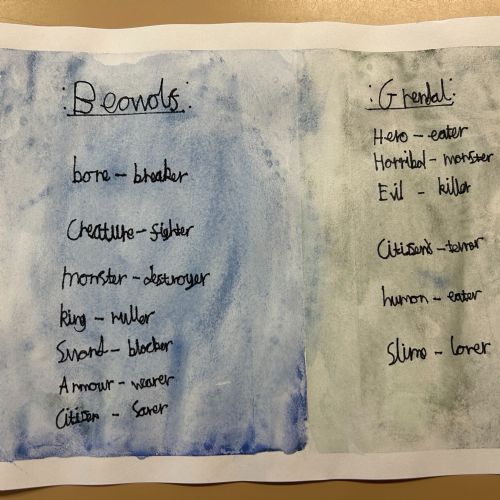 :Beowols:
bone - breaker
Creature - fighter
monster - destroyer
king - ruller
Sword - blocker
Armour - wearer
Citizen - Saver
:Grendal:
Hero - eater
Horribol - monster
Evil - killer
Citisens - terror
human - eater
Slime - lover